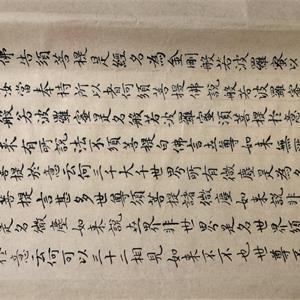 佛告須菩提是經名為金剛般若波羅蜜以
汝當奉持所以者何須菩提佛說般若波羅蜜
般若波羅蜜是名般若波羅蜜須菩提於意
來有所說法不須菩提白佛言世尊如來無
提於意云何三千大千世界所有微塵是為
菩提言甚多世尊須菩提諸微塵如來說
是名微塵如來說世界非世界是名世界須
於意云何可以三十二相見如來不不也世尊不